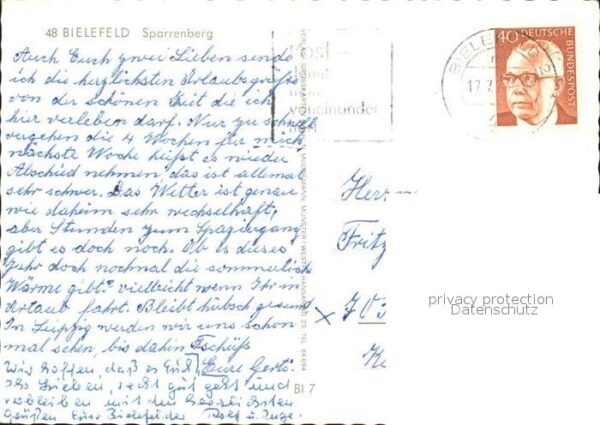 48 BIELEFELD Sparrenberg
Auch Euch zwei Lieben sende
ich die herzlichsten Urlaubsgrüße
von der schönen Zeit die ich
hier verleben darf. Nur zu schnell
vergehen die 4 Wochen für mich
nächste Woche heißt es wieder
Abschied nehmen, das ist allemal
sehr schwer. Das Wetter ist genau
wie daheim sehr wechselhaft,
aber Stunden zum Spaziergang
gibt es doch noch. Ob es dieses
Jahr doch nochmal die sommerliche
Wärme gibt? vielleicht wenn Ihr in
Urlaub fahrt. Bleibt hübsch gesund
In Leipzig werden wir uns schon
mal sehen, bis dahin Tschüß
Eure Gert.
Wir hoffen, daß es Euch
Lieben, recht gut geht und
verbleiben mit den herzlichsten
Grüßen Eure Bielefelder Rolf u. Inge.
BI 7
voneinander
BIELE
17.7.
40 DEUTSCHE
BUNDESPOST
Herrn
Fritz
X 703
privacy protection
Datenschutz